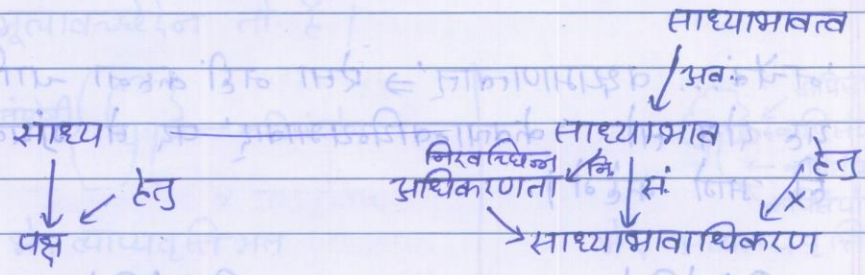 साध्याभावत्व
अव.
साध्य साध्याभाव
निरवच्छिन्न नि. हेतु
अधिकरणता सं.
हेतु ×
पक्ष साध्याभावाधिकरण